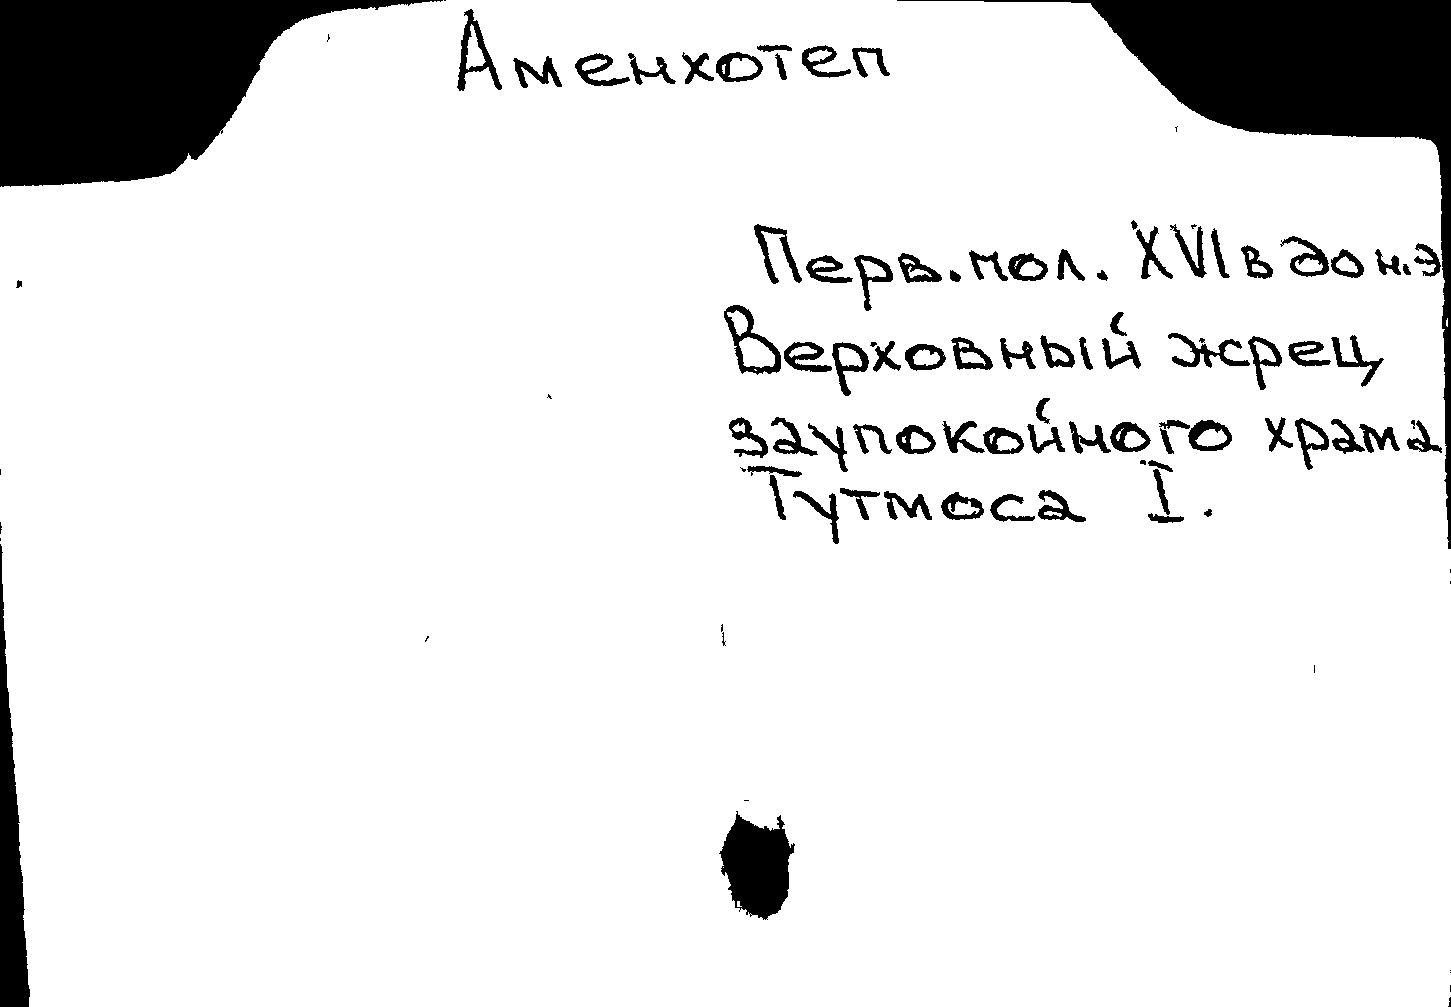 Аменхотеп
Перв. пол. XVI в до н.э
Верховный жрец
заупокойного храма
Тутмоса I.